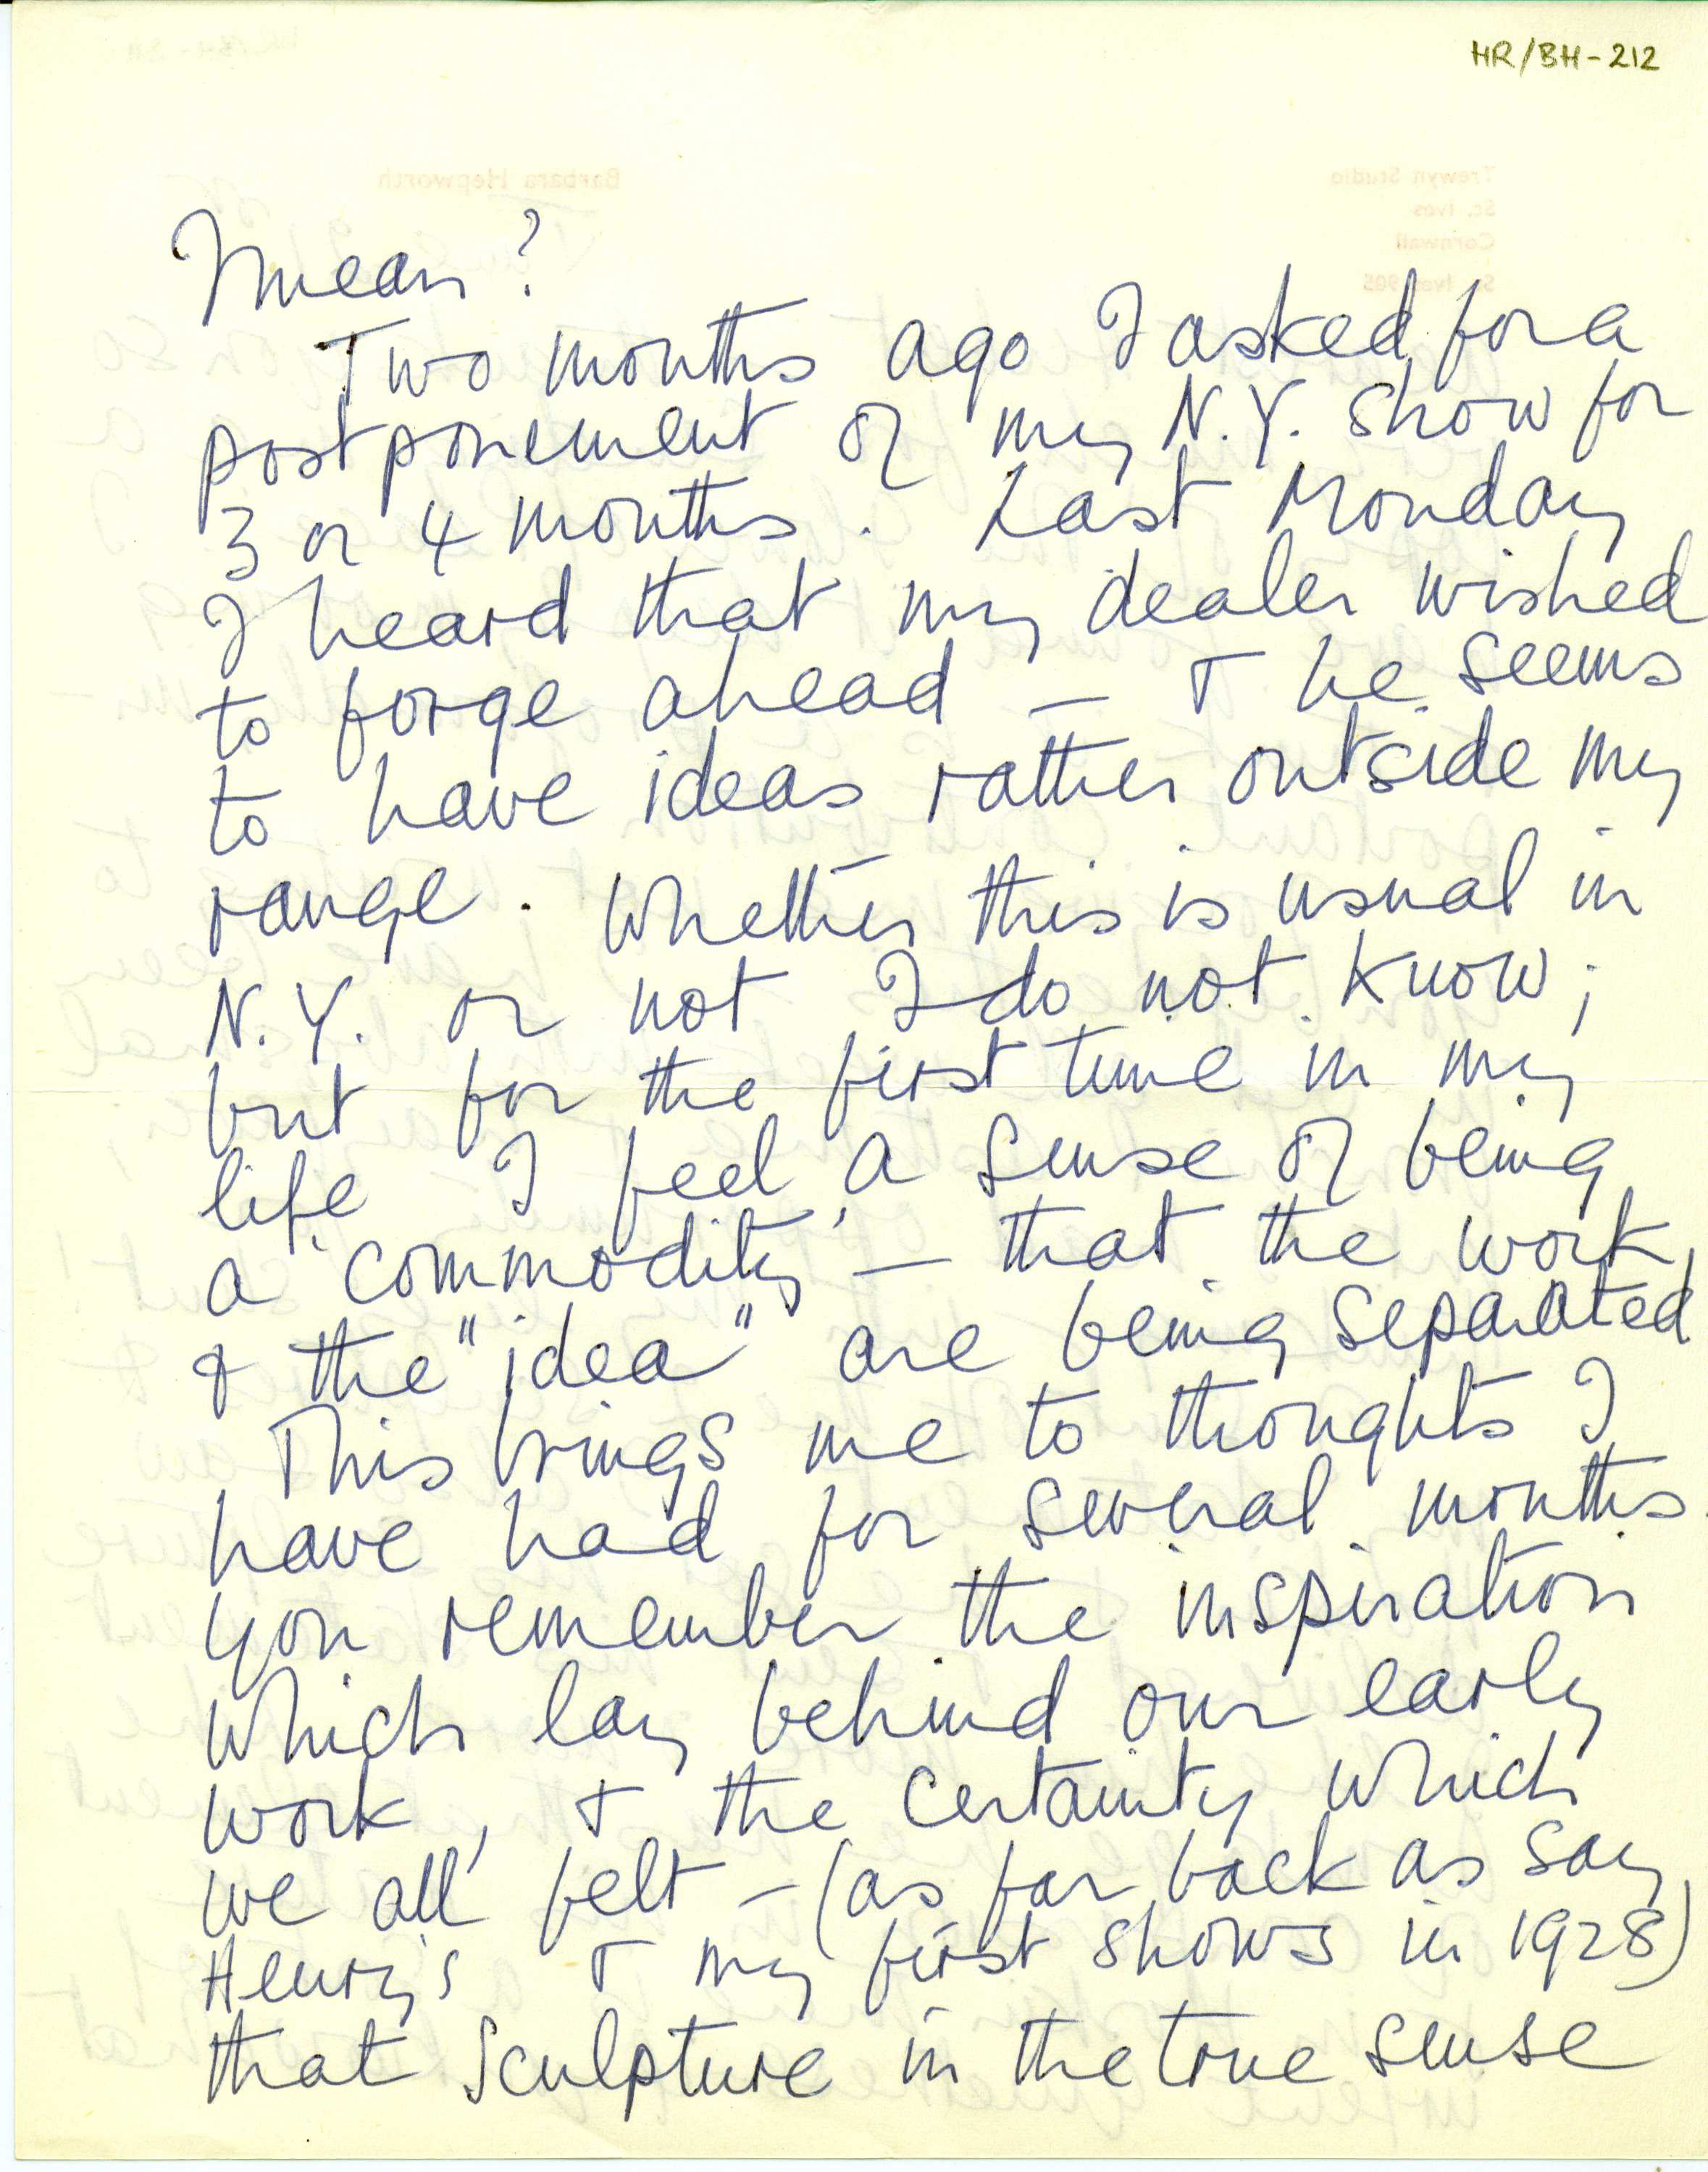 HR/BH-212
I mean?
Two months ago I asked for a
postponement of my N.Y. show for
3 or 4 months. Last Monday
I heard that my dealer wished
to forge ahead — & he seems
to have ideas rather outside my
range. Whether this is usual in
N.Y. or not I do not know;
but for the first time in my
life I feel a sense of being
a 'commodity' — that the work,
& the "idea" are being separated
This brings me to thoughts I
have had for several months.
You remember the inspiration
which lay behind our early
work, & the certainty which
we all felt — (as far back as say
Henry's & my first shows in 1928)
that sculpture in the true sense
Barbara Hepworth
Trewyn Studio
St. Ives
Cornwall